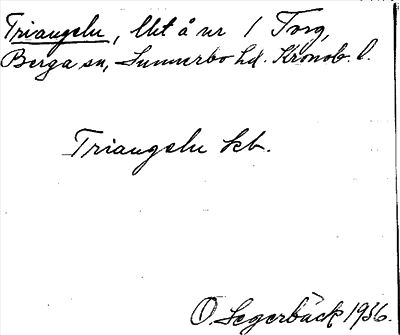 Triangeln, lht å nr 1 Torg,
Berga sn, Sunnerbo hd. Kronob. l.
Triangeln skb.
O Segerbäck 1936.